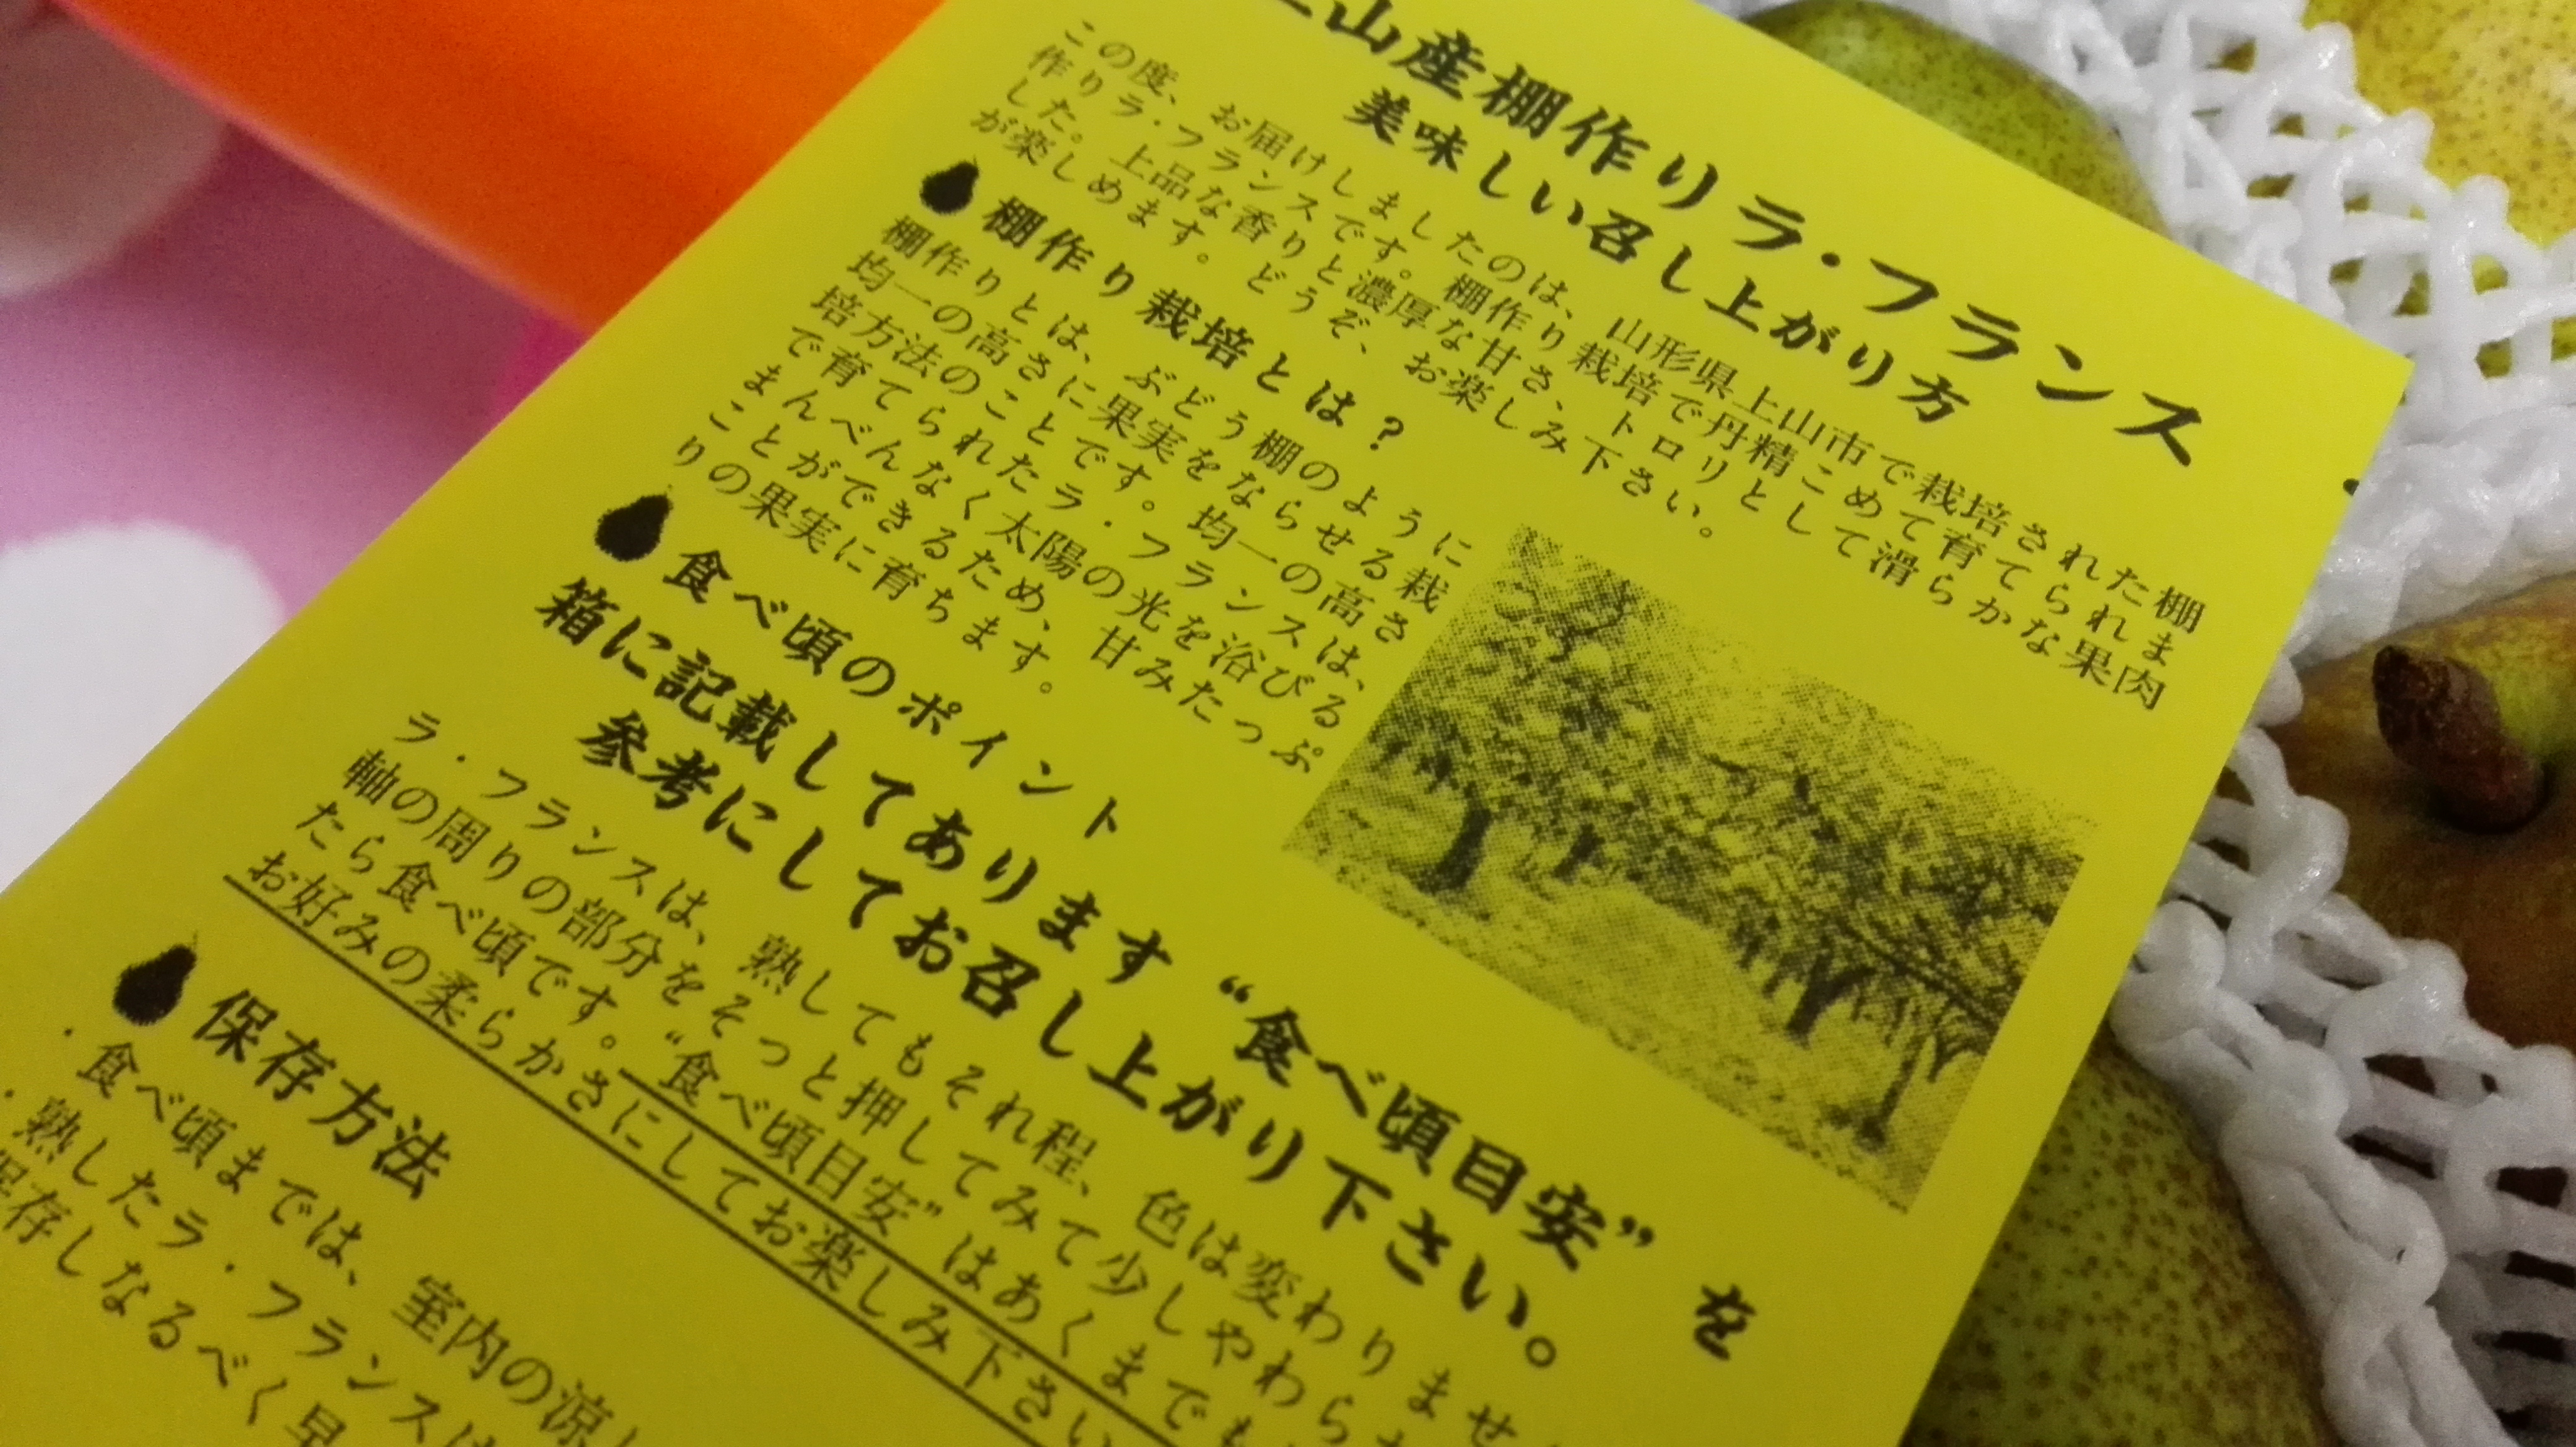 上山産棚作りラ・フランス
美味しい召し上がり方
この度、お届けしましたのは、山形県上山市で栽培された棚
作りラ・フランスです。棚作り栽培で丹精こめて育てられま
した。上品な香りと濃厚な甘さ、トロリとして滑らかな果肉
が楽しめます。どうぞ、お楽しみ下さい。
棚作り栽培とは?
棚作りとは、ぶどう棚のように
均一の高さに果実をならせる栽
培方法のことです。均一の高さ
で育てられたラ・フランスは、
まんべんなく太陽の光を浴びる
ことができるため、甘みたっぷ
りの果実に育ちます。
食べ頃のポイント
箱に記載してあります“食べ頃目安”を
参考にしてお召し上がり下さい。
ラ・フランスは、熟してもそれ程、色は変わりませ
軸の周りの部分をそっと押してみて少しやわら
たら食べ頃です。“食べ頃目安”はあくまでも
お好みの柔らかさにしてお楽しみ下さい
保存方法
・食べ頃までは、室内の涼し
・熟したラ・フランスは
保存しなるべく早